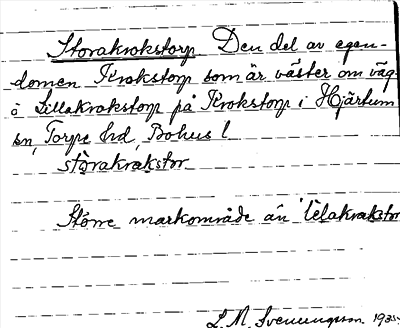 Storakrokstorp. Den del av egen-
domen Krokstorp som är väster om väg.
å Lillakrokstorp på Krokstorp i Hjärtum
sn, Torpe hd, Bohus l.
stòrakrakstor
Större markområde än lìlakrakstor
L. M. Svenungsson 1935